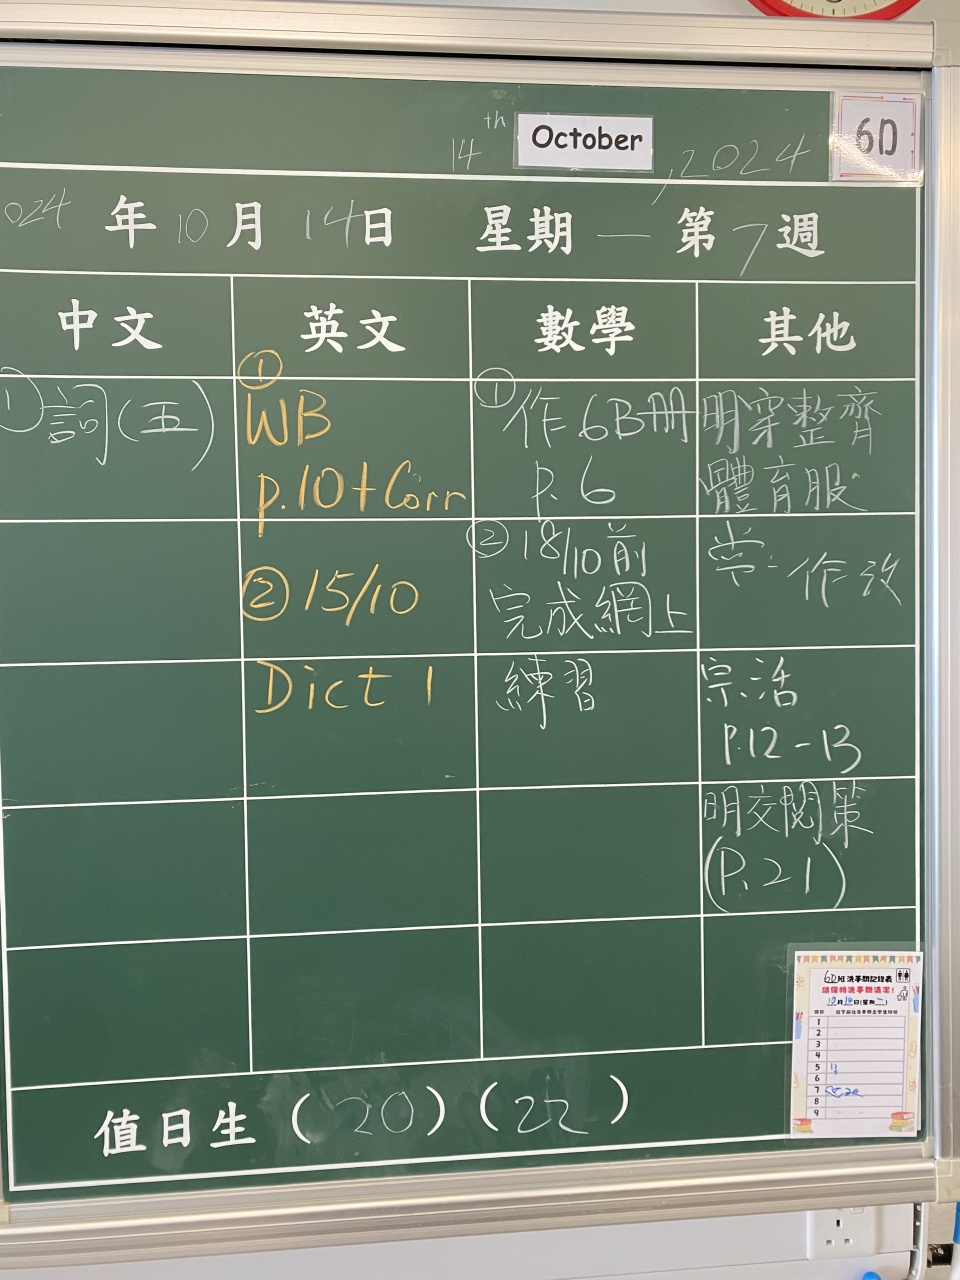 14th October, 2024
6D
024年10月14日 星期一 第7週
中文
英文
數學
其他
① 詞(五)
①
WB
p.10+Corr
② 15/10
Dict 1
① 作6B冊
P.6
② 18/10前
完成網上
練習
明穿整齊
體育服
常-作改
宗.活
P.12-13
明交閱策
(P.21)
6D班洗手間記錄表
請保持洗手間清潔!
1
2
3
4
5
6
7
8
9
值日生(20)(22)